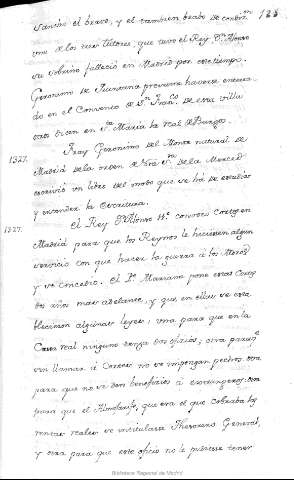 123
Sancho el bravo, y el tambien trato de
uno de los tres tutores, que tuvo el Rey Dn. Alonso
su sobrino fallecio en Madrid por este tiempo.
Geronimo de Quintana presume haverse enterra-
do en el Convento de Sn. Franco. de esta villa
otros dicen en Sta. Maria la real de Burgos.
1327. Fray Geronimo del Monte natural de
Madrid de la orden de Nra. Sra. de la Merced
escrivió un libro del modo que se há de estudiar
y entender la Escritura.
1327. El Rey Dn. Alonso Xº. convoco Cortes en
Madrid para que los Reynos le hiciesen algun
servicio con que hacer la guerra á los Moros
y se concedio. El Pe. Mariana pone estas Cortes
dos años mas adelante, y que en ellas se esta
blecieron algunas leyes, una para que en la
Casa real ninguno tenga dos oficios; otra para qe.
sin llamar á Cortes no se impongan pechos, otra
para que no se den beneficios á extrangeros; otra
para que el Almojarife, que era el que cobraba las
rentas reales se intitulara Thesorero General,
y otra para que este oficio no le pudiese tener
Biblioteca Regional de Madrid